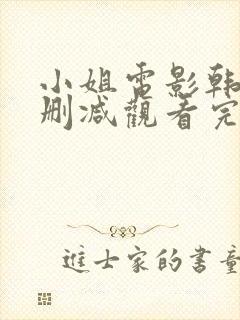 小姐電影韩
删减觀看完
進士家的書童